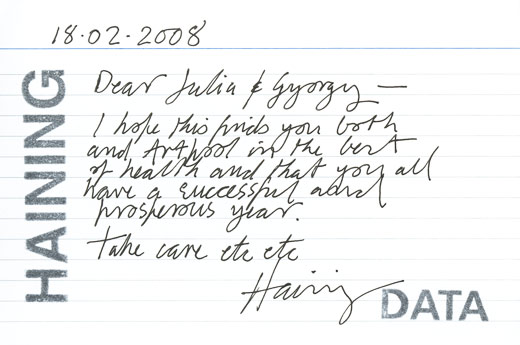 18.02.2008
HAINING
Dear Julia & Gyorgy —
I hope this finds you both
and Artpool in the best
of health and that you all
have a successful and
prosperous year.
Take care etc etc
Haining
DATA